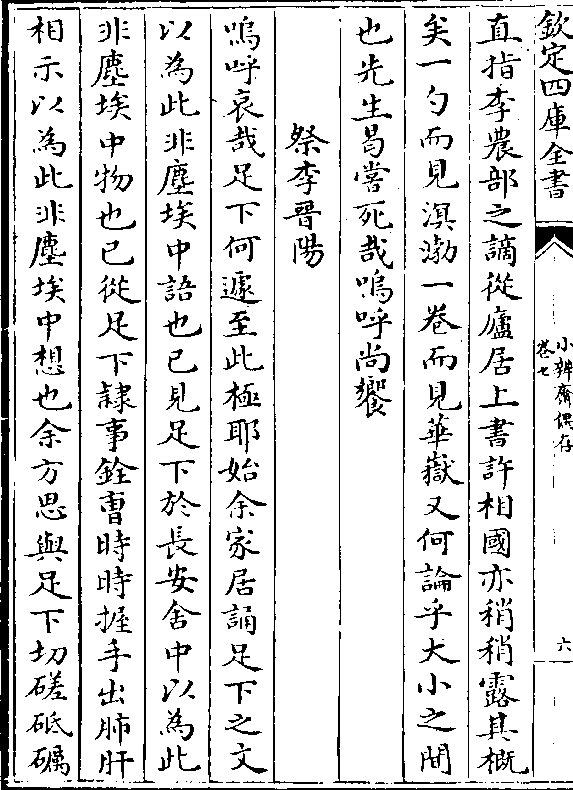 欽定四庫全書
小辨齋偶存
卷七
六
直指李農部之謫從廬居上書許相國亦稍稍露其概
矣一勺而見溟渤一卷而見華嶽又何論乎大小之間
也先生曷嘗死哉嗚呼尚饗
祭李晉陽
嗚呼哀哉足下何遽至此極耶始余家居誦足下之文
以為此非塵埃中語也已見足下於長安舍中以為此
非塵埃中物也已從足下隷事銓曹時時握手出肺肝
相示以為此非塵埃中想也余方思與足下切磋砥礪